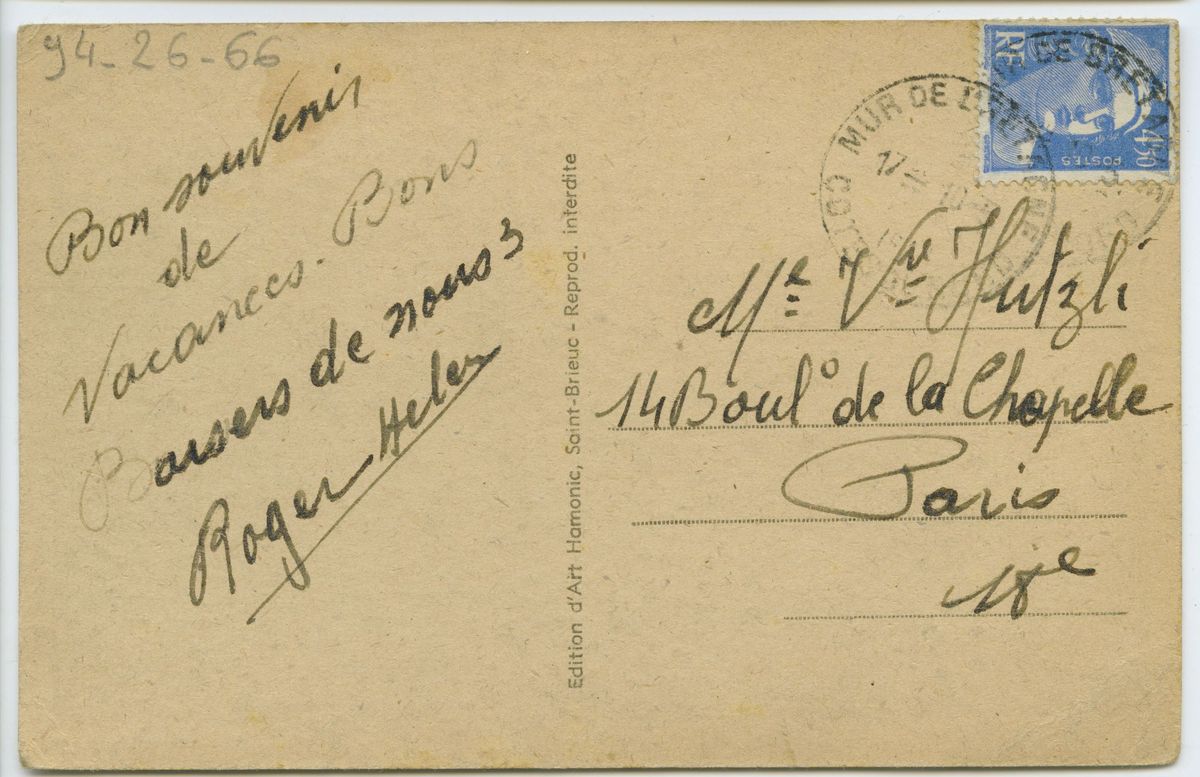 94-26-66
Bon souvenir
de
Vacances. Bons
Baisers de nous 3
Roger Helen
Edition d'Art Hamonic, Saint-Brieuc - Reprod. interdite
RF
POSTES
4F50
MUR DE BRETAGNE
17
COTES
Me Vve Hutzli
14 Boul^o de la Chapelle
Paris
18e